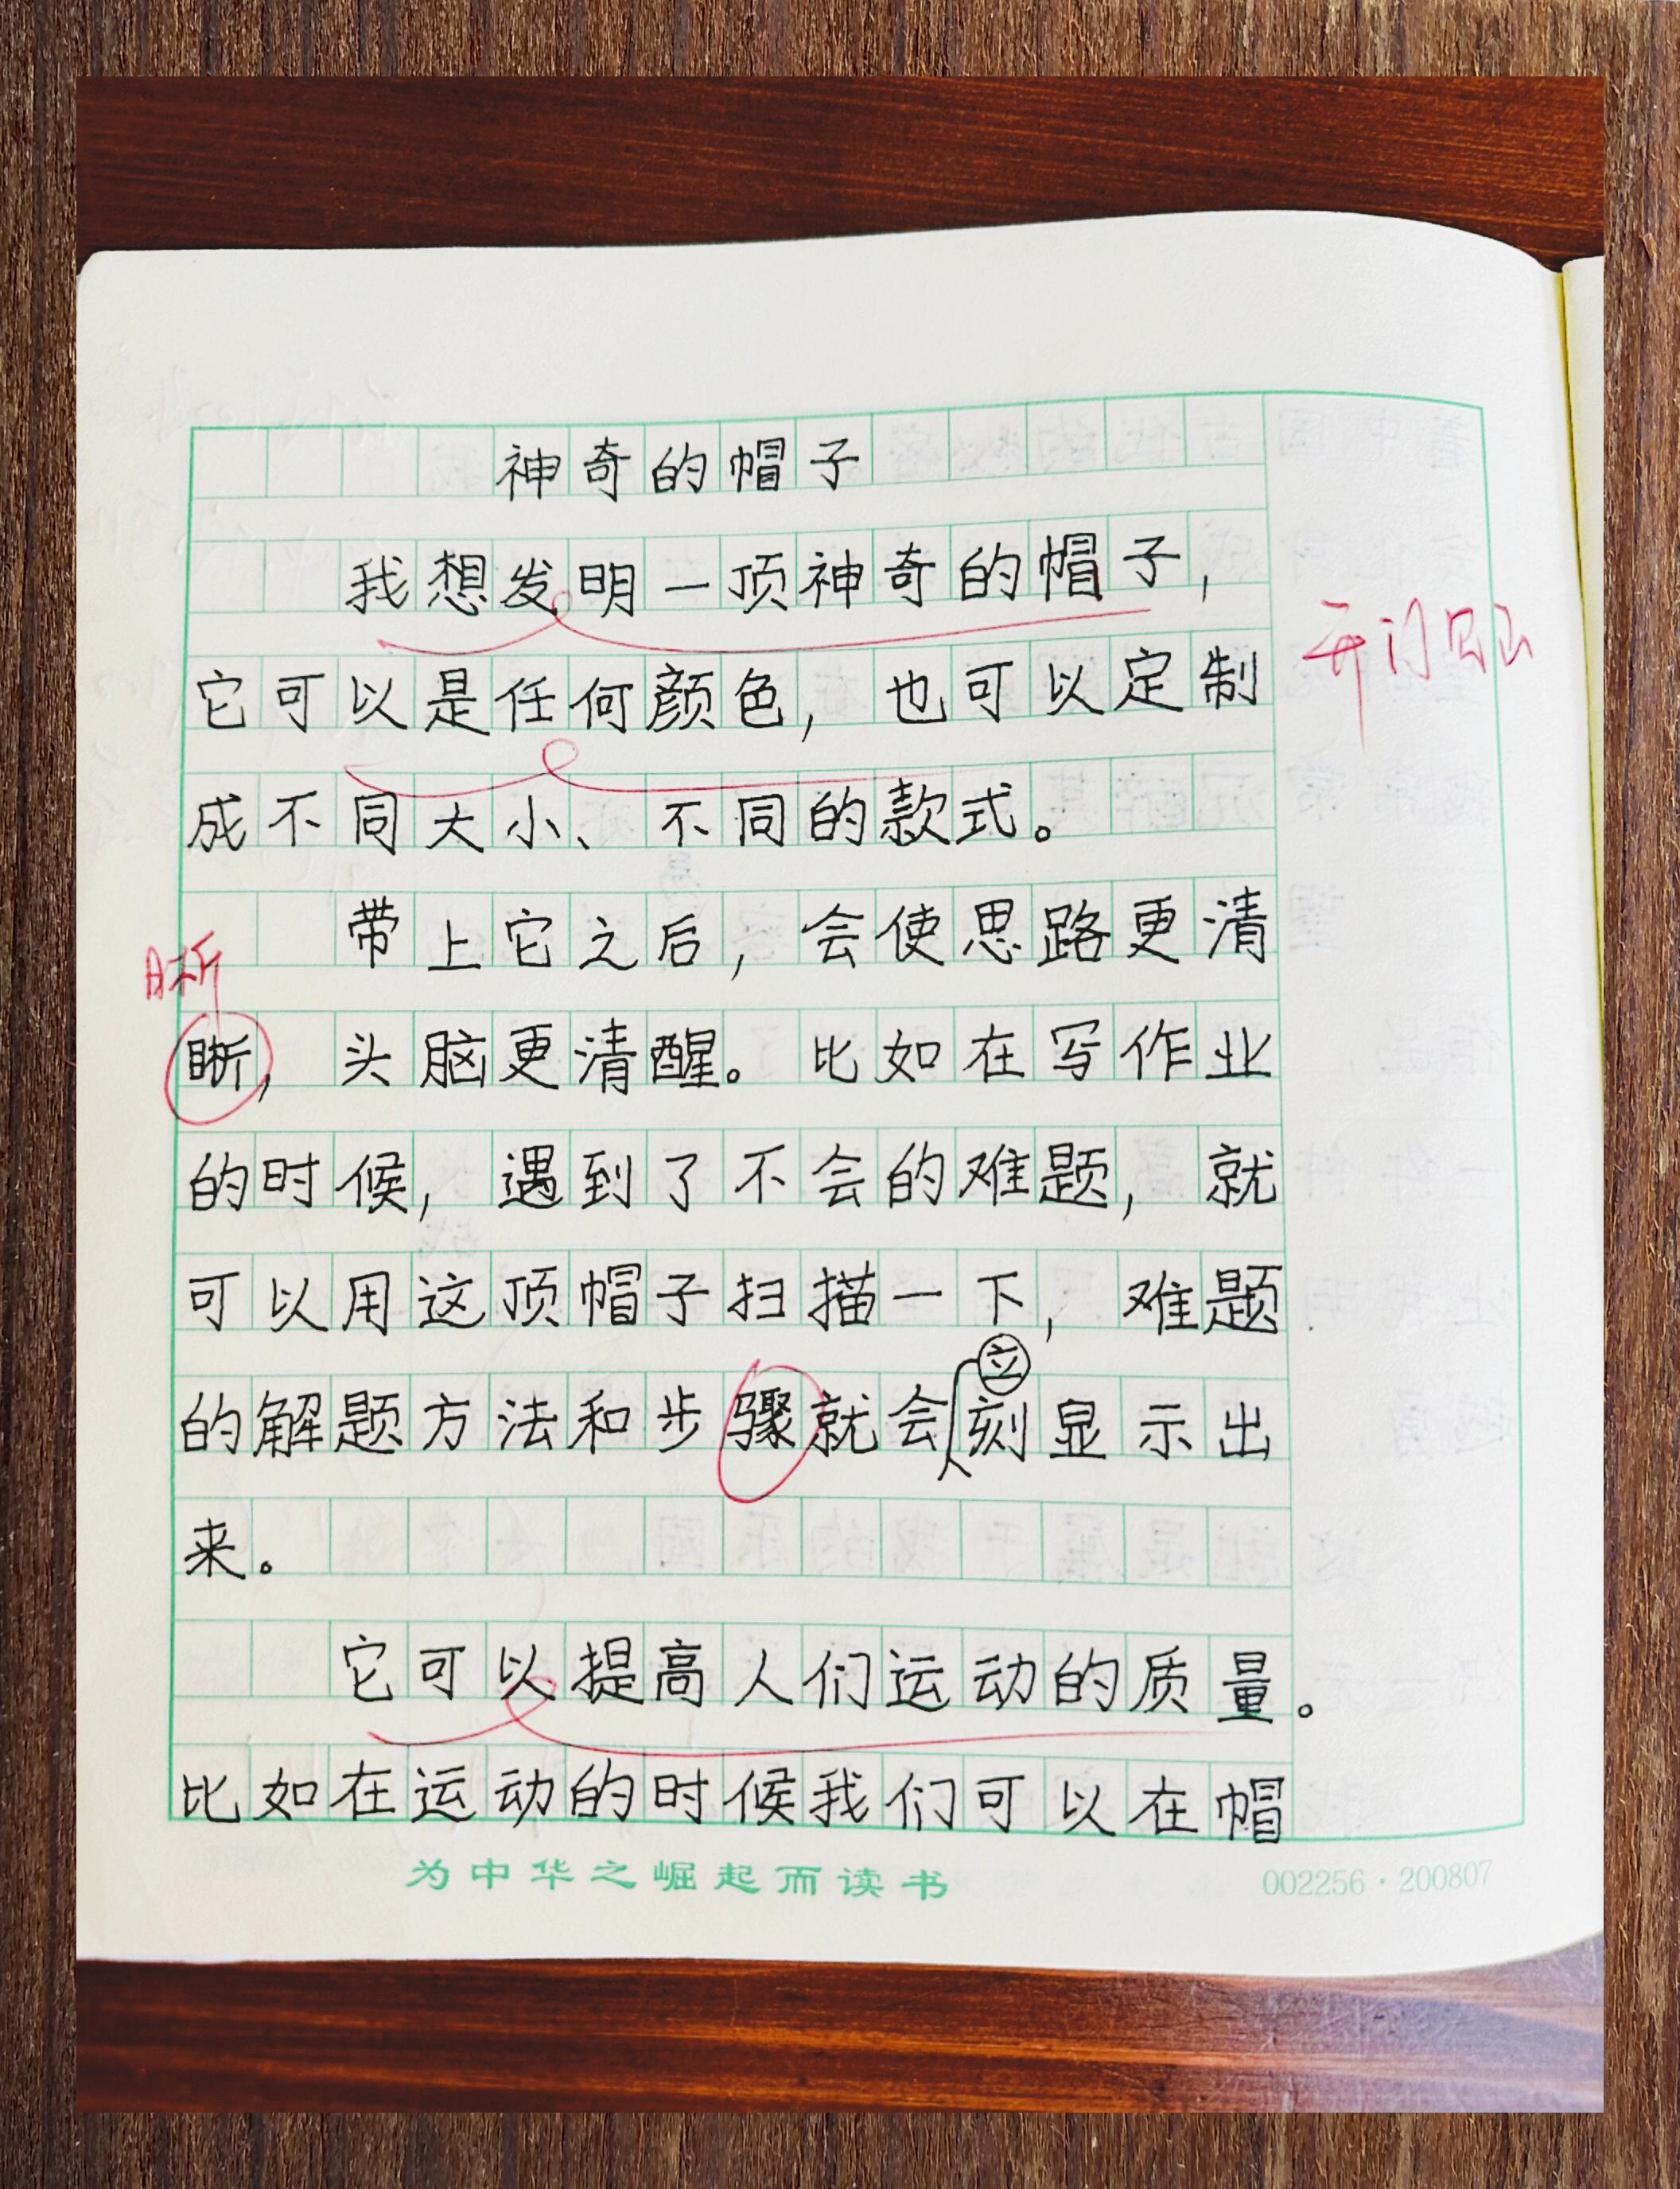 神奇的帽子
我想发明一顶神奇的帽子，
开门见山
它可以是任何颜色，也可以定制
成不同大小、不同的款式。
带上它之后，会使思路更清
晰
晣，头脑更清醒。比如在写作业
的时候，遇到了不会的难题，就
可以用这顶帽子扫描一下，难题
立
的解题方法和步骤就会刻显示出
来。
它可以提高人们运动的质量。
比如在运动的时候我们可以在帽
为中华之崛起而读书
002256·200807